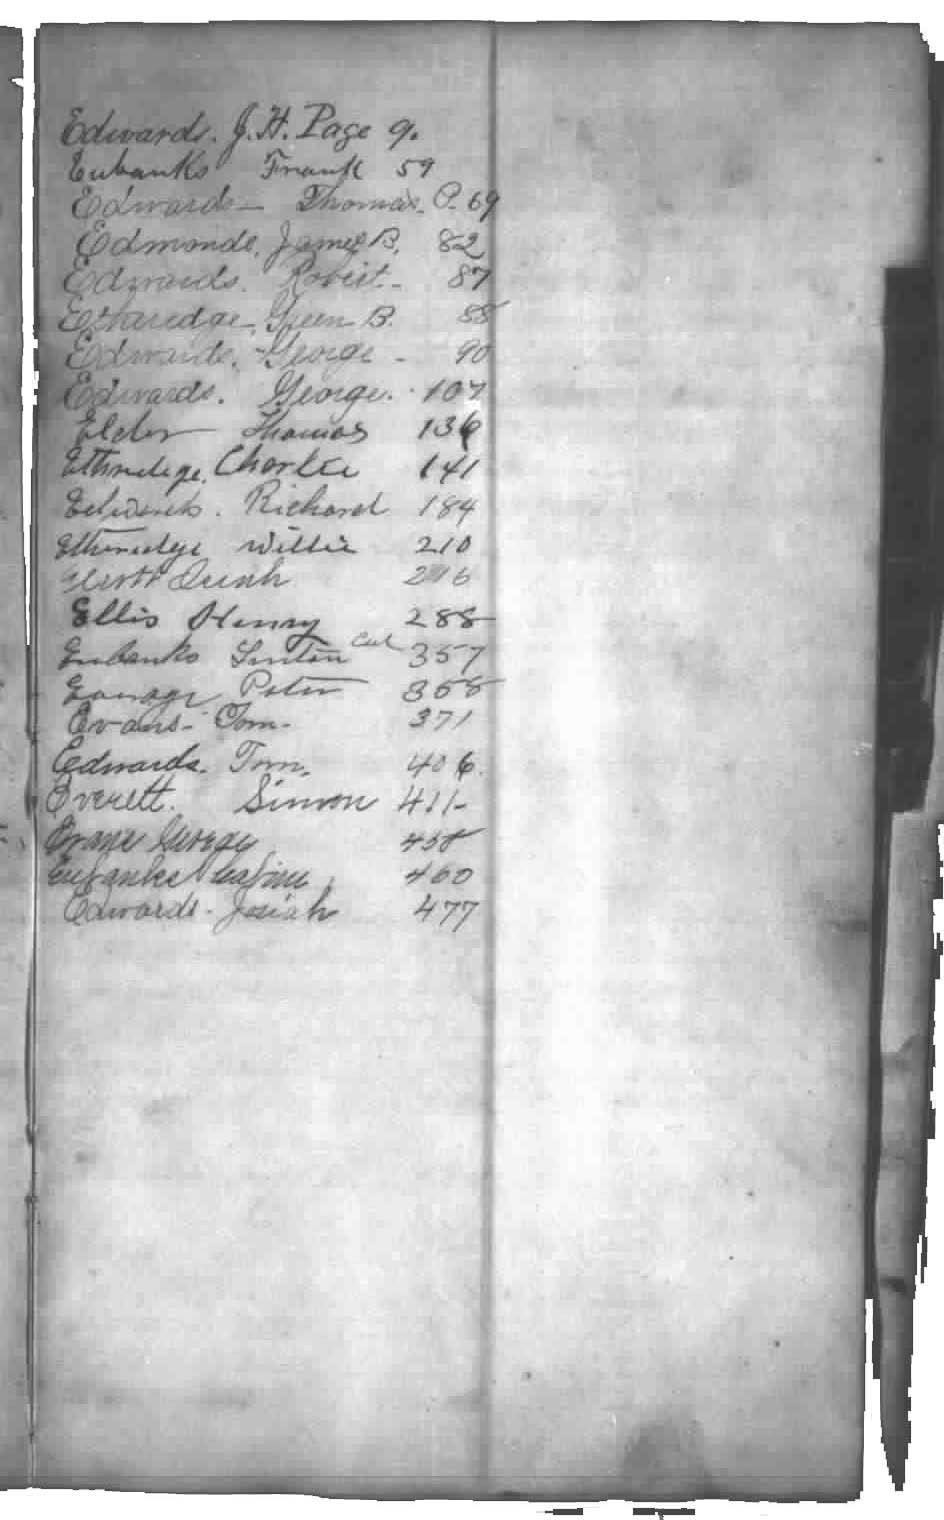 Edwards. J. H. Page 9.
Eubanks Frank 59
Edwards — Thomas. P. 69
Edmonds, James B. 82
Edwards. Robert - 87
Etharedge, Green B. 88
Edwards. George - 90
Edwards. George. 107
Elder Thomas 136
Ethredege, Charlie 141
Edwards. Richard 184
Etheredge Willie 210
216
Ellis Henry 288
Eubanks Linton Col 357
Peter 368
Evans - Tom - 371
Edwards. Tom. 406.
Everett. Simon 411 -
George 458
Eubanks 460
Edwards - Josiah 477